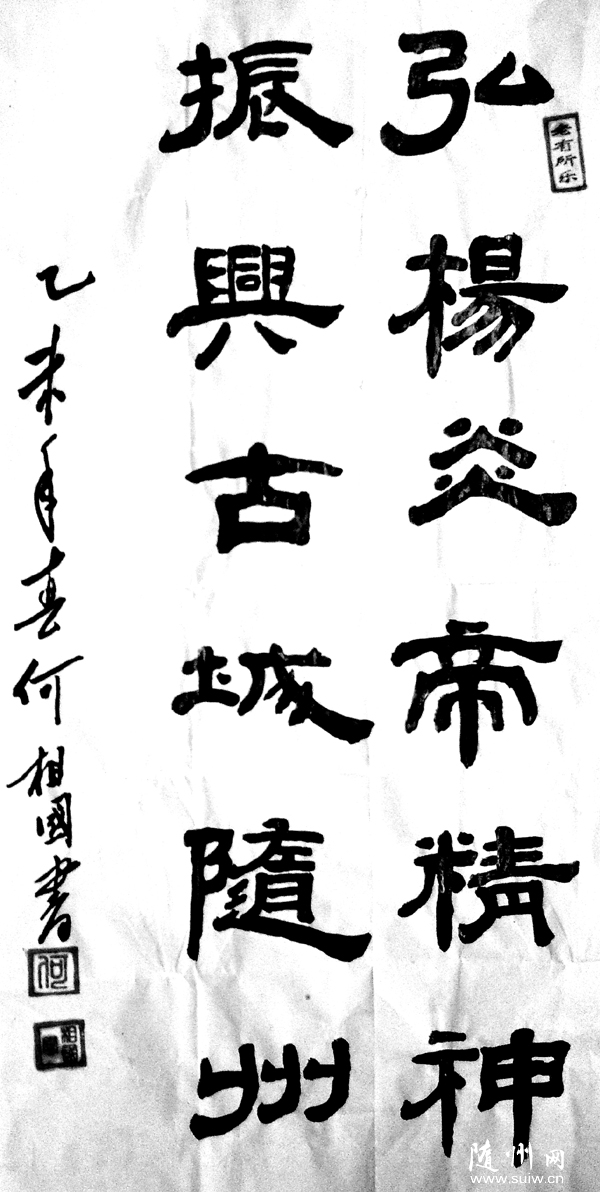 弘楊炎帝精神
老有所乐
振興古城隨州
乙未年春何相國書
何
隨州网
www.suiw.cn